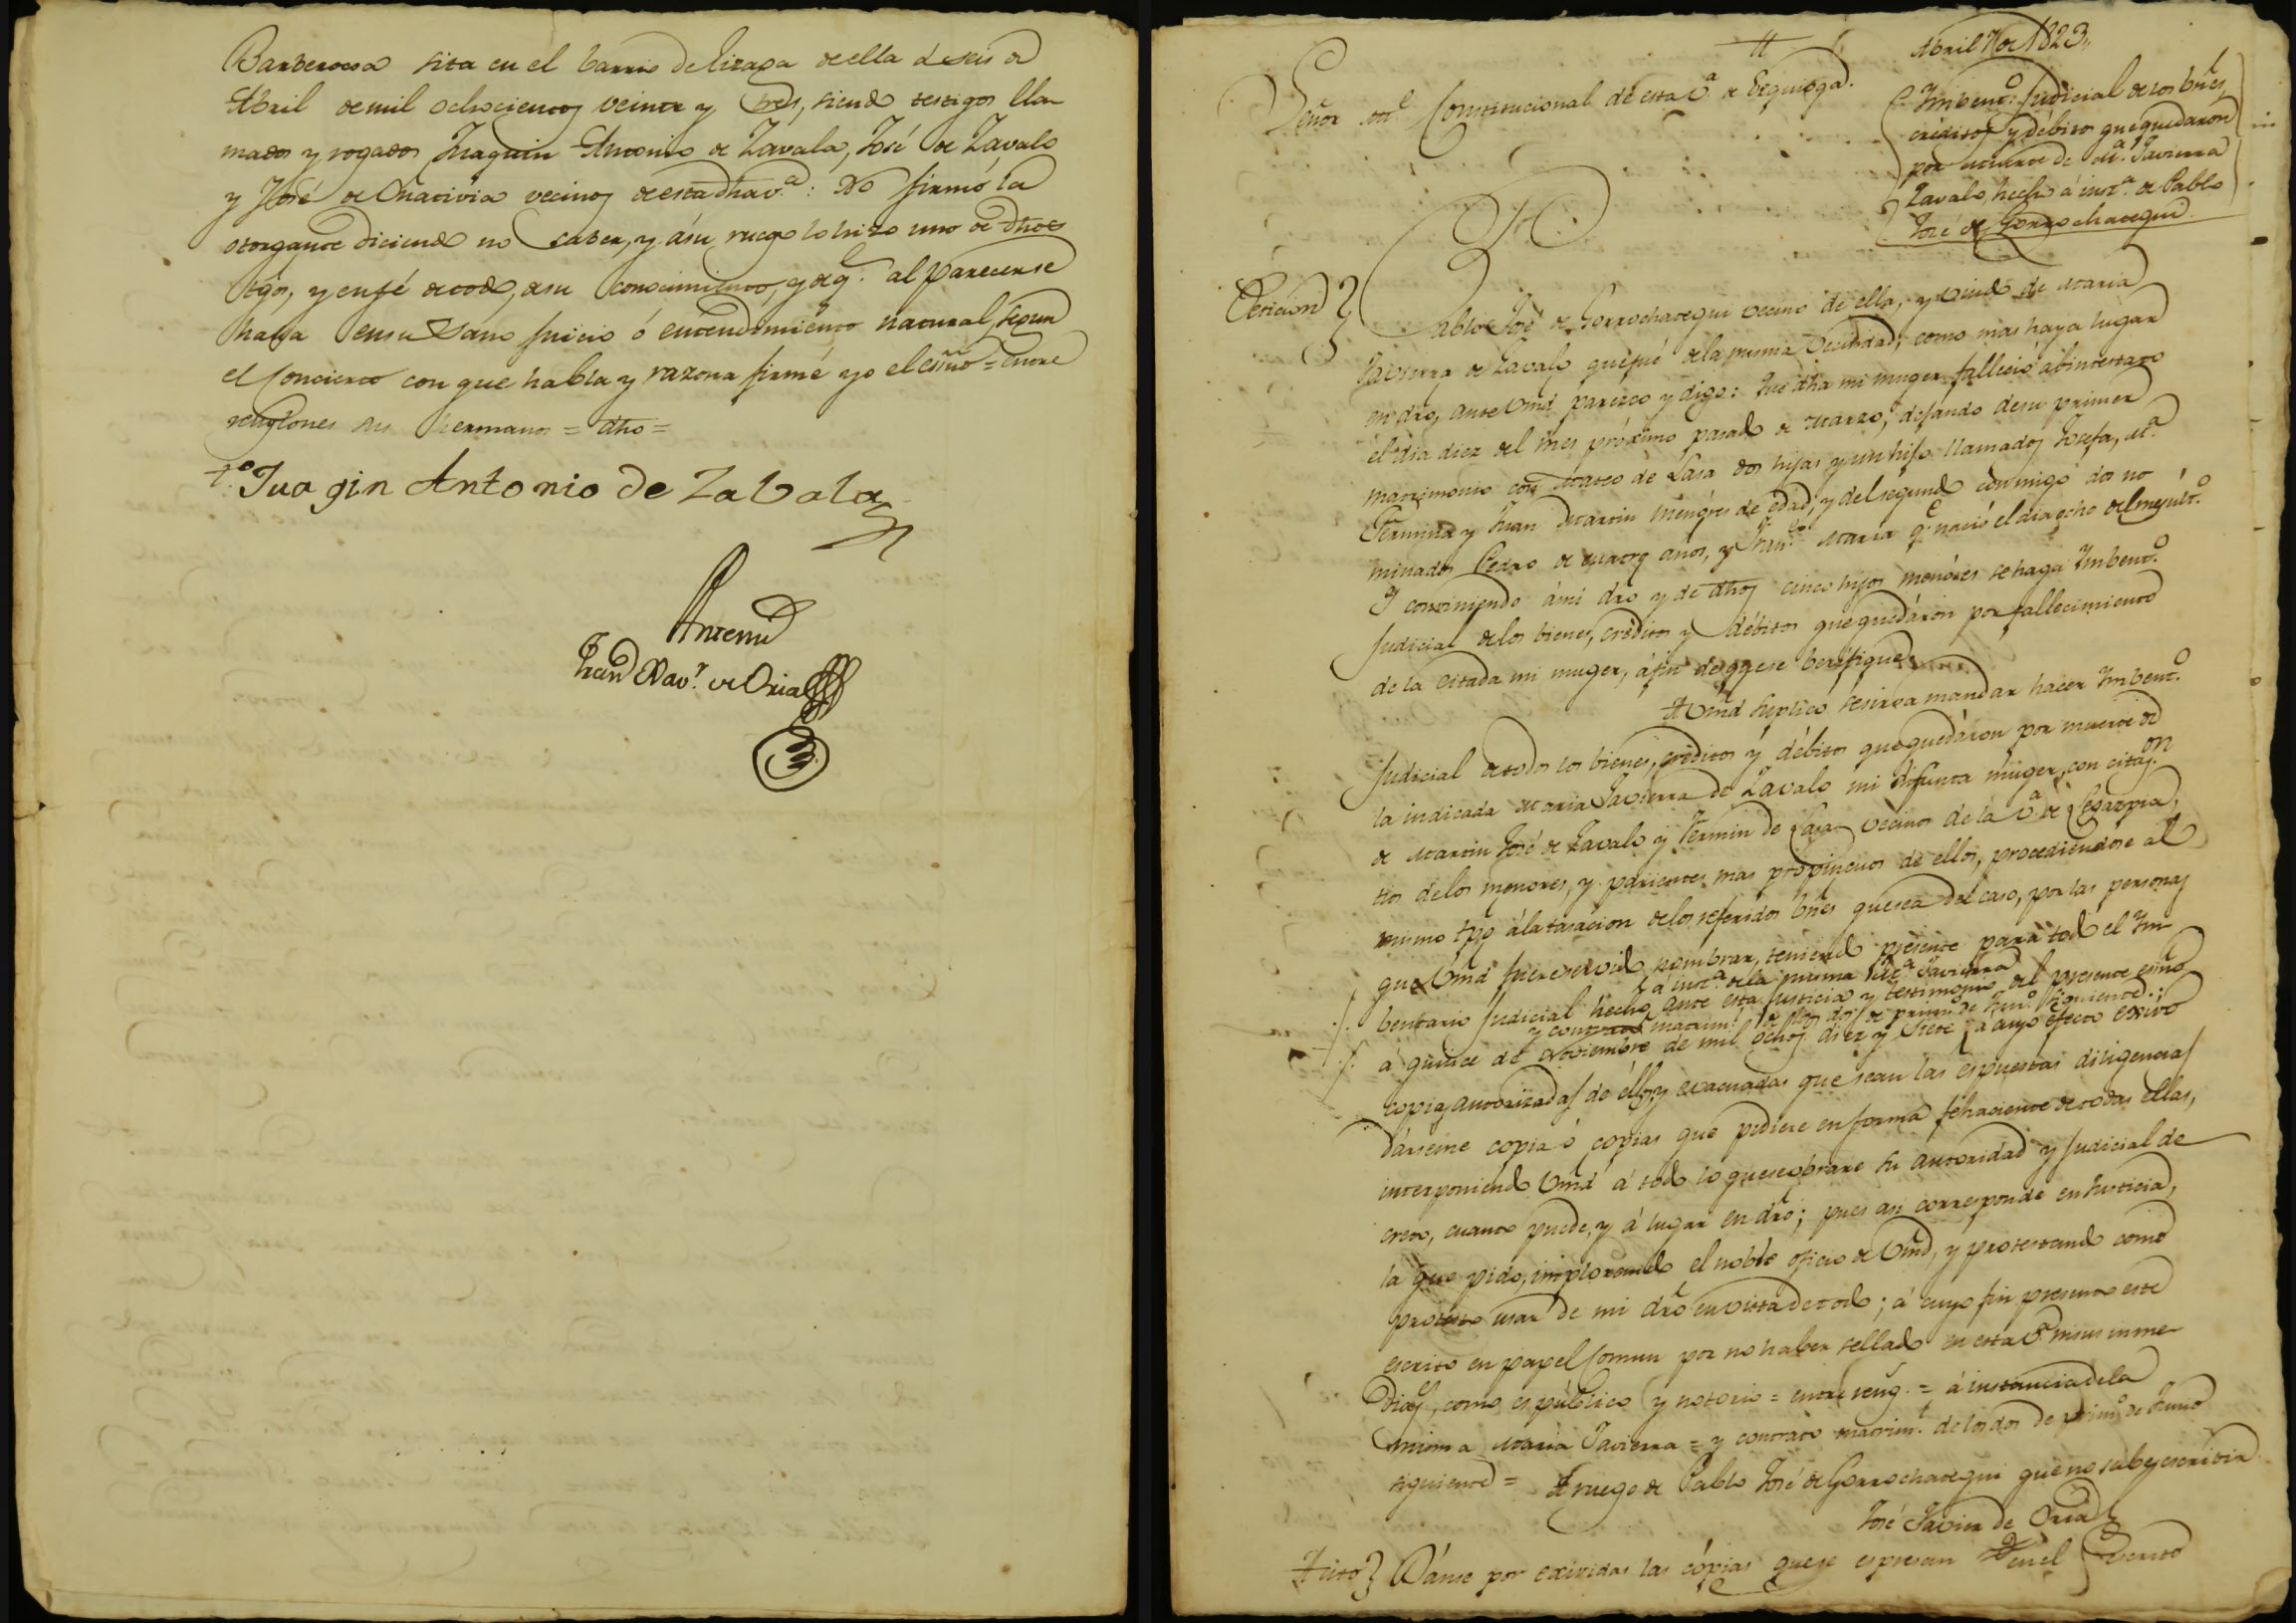 Barberoeta sita en el barrio de lizarga de ella á seis de
Abril de mil ochocientos veinte y tres, siendo testigos lla-
mados y rogados Juaquin Antonio de Zavala, José de Zavalo
y José de Oñativia vecinos de esta dha v.ª: No firmó la
otorgante diciendo no saber, y á su ruego lo hizo uno de dhos
tgos, y en fé de todo, de su conocimiento, y de q.e al parecer se
halla en su sano juicio ó entendimiento natural, segun
el concierto con que habla y razona firmé yo el esñno = entre
renglones sus hermanos = dho =
T.o Juaqin Antonio de Zabala
Antemi
Juan Xav.r de Oria
Abril 7 de 1823,,
Imbent.o Judicial de los bñes,
créditos y débitos que quedaron
por muerte de M.ª Javierra
Zavalo, hecho á inst.ª de Pablo
José de Gorrochategui
Señor Al.e Constitucional de esta V.ª de Ezquioga.
Peticion } Pablo José de Gorrochategui vecino de ella, y viudo de Maria
Javierra de Zavalo que fué de la misma vecindad, como mas haya lugar
en dro, ante Vmd parezco y digo: Que dha mi muger falleció abintestato
el dia diez del mes próximo pasado de Marzo, dejando de su primer
matrimonio con Mateo de Lasa dos hijas y un hijo llamados Josefa, M.ª
Fermina y Juan Martin menores de edad, y del segundo conmigo dos no
minados Pedro de cuatro años, y Fran.co Maria q.e nació el dia ocho del mes últ.o
Y conviniendo á mi dro y de dhos cinco hijos menores se haga Imbent.o
Judicial de los bienes, créditos y débitos que quedáron por fallecimiento
de la citada mi muger, á fin de que se berifique,
A Vmd suplico se sirva mandar hacer Imbent.o
Judicial de todos los bienes, créditos y débitos que quedáron por muerte de
la indicada Maria Javierra de Zavalo mi difunta muger, con citaz.on
de Martin José de Zavalo y Fermin de Lasa vecinos de la V.ª de Legazpia,
tios de los menores, y parientes mas propincuos de ellos, procediendose al
mismo tpo á la tasacion de los referidos bñes que sea del caso, por las personas
que Vmd fuere servido nombrar, teniendo presente para todo el Im-
á inst.ª de la misma M.ª Javierra
bentario Judicial hecho ante esta Justicia y testimonio del presente esñno
y contrato matrim.l de los dos de primo de Jun.o siguiente
á quince de Noviembre de mil ochos diez y siete á cuyo efecto exivo
copias autorizadas de ellos, y evacuadas que sean las espuestas diligencias
dárseme copia ó copias que pidiere en forma fehaciente de todas ellas,
interponiendo Vmd á todo lo que se obrare su autoridad y Judicial de-
creto, cuanto puede, y á lugar en dro; pues asi corresponde en Justicia,
la que pido, implorando el noble oficio de Vmd, y protestando como
protesto usar de mi dro en vista de todo; á cuyo fin presento este
escrito en papel comun por no haber sellado en esta V.ª ni sus inme-
diaz.s, como es público y notorio = entre reng.s = á instancia de la
misma Maria Javierra = y contrato matrim.l de los dos de prim.o de Junio
siguiente = A ruego de Pablo José de Gorrochategui que no sabe escribir
José Javier de Oria
Auto } Dánse por exividas las cópias que se espresan en el Escrito